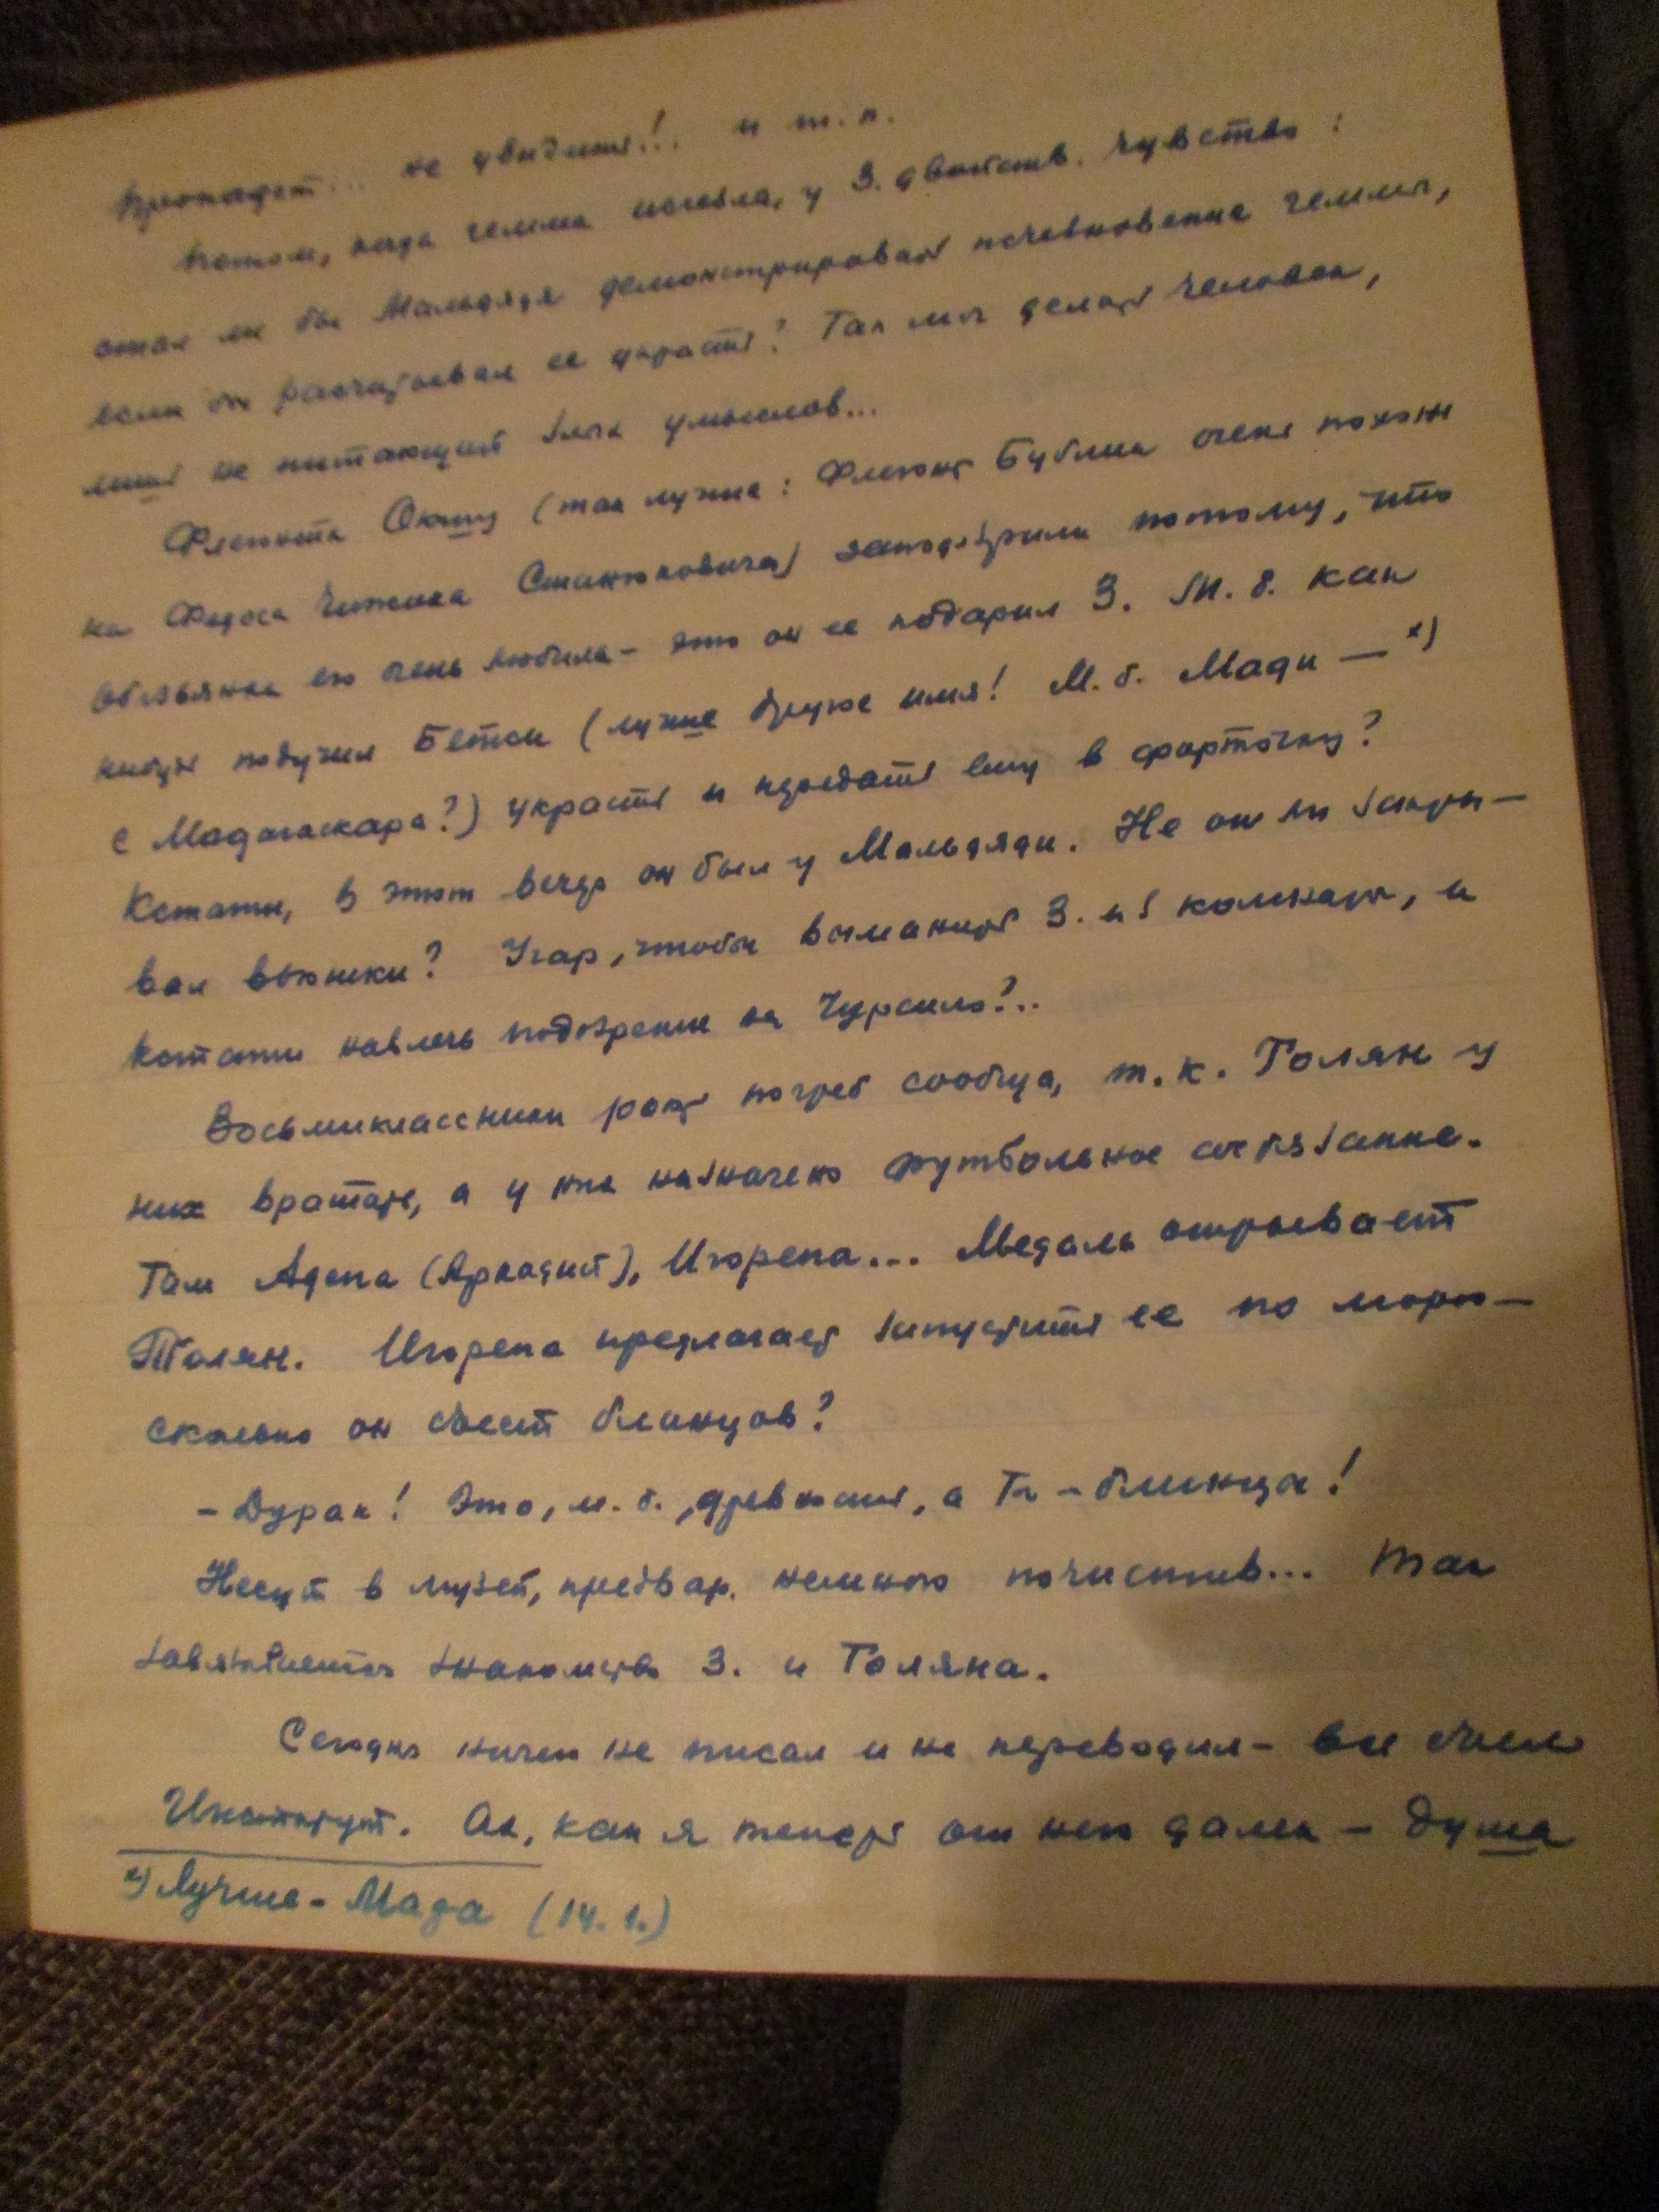 пропадет... не увидишь!.. и т.п.
Потом, когда гемма исчезла, у З. двойств. чувство:
стал ли бы Мальдядя демонстрировать исчезновение геммы,
если бы рассчитывал ее украсть? Так мог делать человек,
лишь не питающий злых умыслов...
Флегонта (так лучше: Флегонт Бублик очень похож
на Федоса Чижика Станюковича) заподозрили потому, что
обезьянка его очень любила – это он ее подарил З. М.б. как
нибудь подучил Бетси (лучше другое имя! М.б. Мади – х)
с Мадагаскара?) украсть и передать ему в форточку?
Кстати, в этот вечер он был у Мальдяди. Не он ли закры-
вал вьюшки? Угар, чтобы выманить З. из комнаты, и
кстати навлечь подозрение на Чурсило?..
Восьмиклассники роют погреб сообща, т.к. Толян у
них вратарь, а у них назначено футбольное состязание.
Там Адепа (Аркадий), Игорепа... Медаль открывает
Толян. Игорепа предлагает запустить ее по морю –
сколько он съест блинцов?
– Дурак! Это, м.б., древность, а ты – блинца!
Несут в музей, предвар. немного почистив... Так
завязывается знакомство З. и Толяна.
Сегодня ничего не писал и не переводил – все съел
Институт. Ах, как я теперь от него далек – душа
х) Лучше – Мада (14.1.)